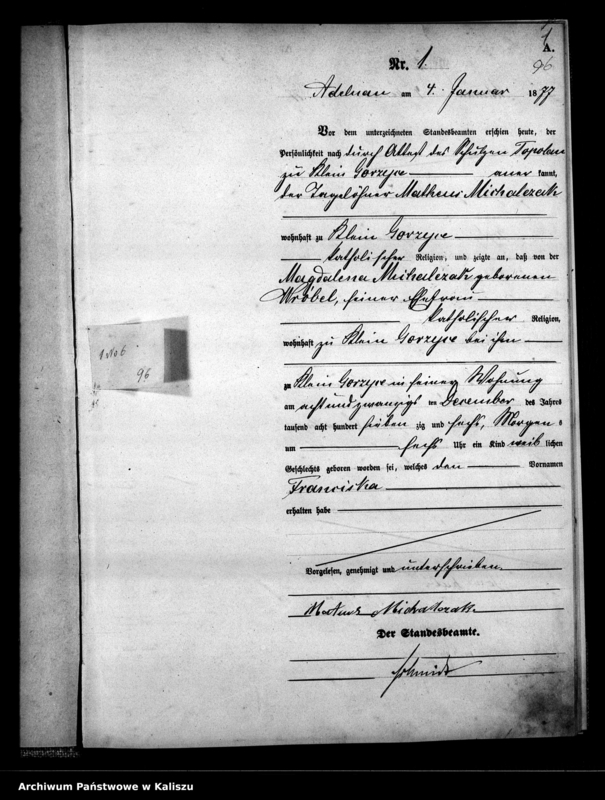 1
A.
96
Nr. 1.
Adelnau am 4. Januar 1877
Vor dem unterzeichneten Standesbeamten erschien heute, der
Persönlichkeit nach durch Attest des Schulzen Topolan
zu Klein Gorzyce aner kannt,
der Tagelöhner Matheus Michalczak
wohnhaft zu Klein Gorzyce
katholischer Religion, und zeigte an, daß von der
Magdalena Michalczak geborenen
Wróbel, seiner Ehefrau
katholischer Religion,
wohnhaft zu Klein Gorzyce bei ihm
zu Klein Gorzyce in seiner Wohnung
am acht und zwanzigs ten December des Jahres
tausend acht hundert sieben zig und sechs, Morgen s
um sechs Uhr ein Kind weib lichen
Geschlechts geboren worden sei, welches den Vornamen
Franciska
erhalten habe
Vorgelesen, genehmigt und unterschrieben
Mateus Michalczak
Der Standesbeamte.
Schmidt
1 No 6
96
Archiwum Państwowe w Kaliszu